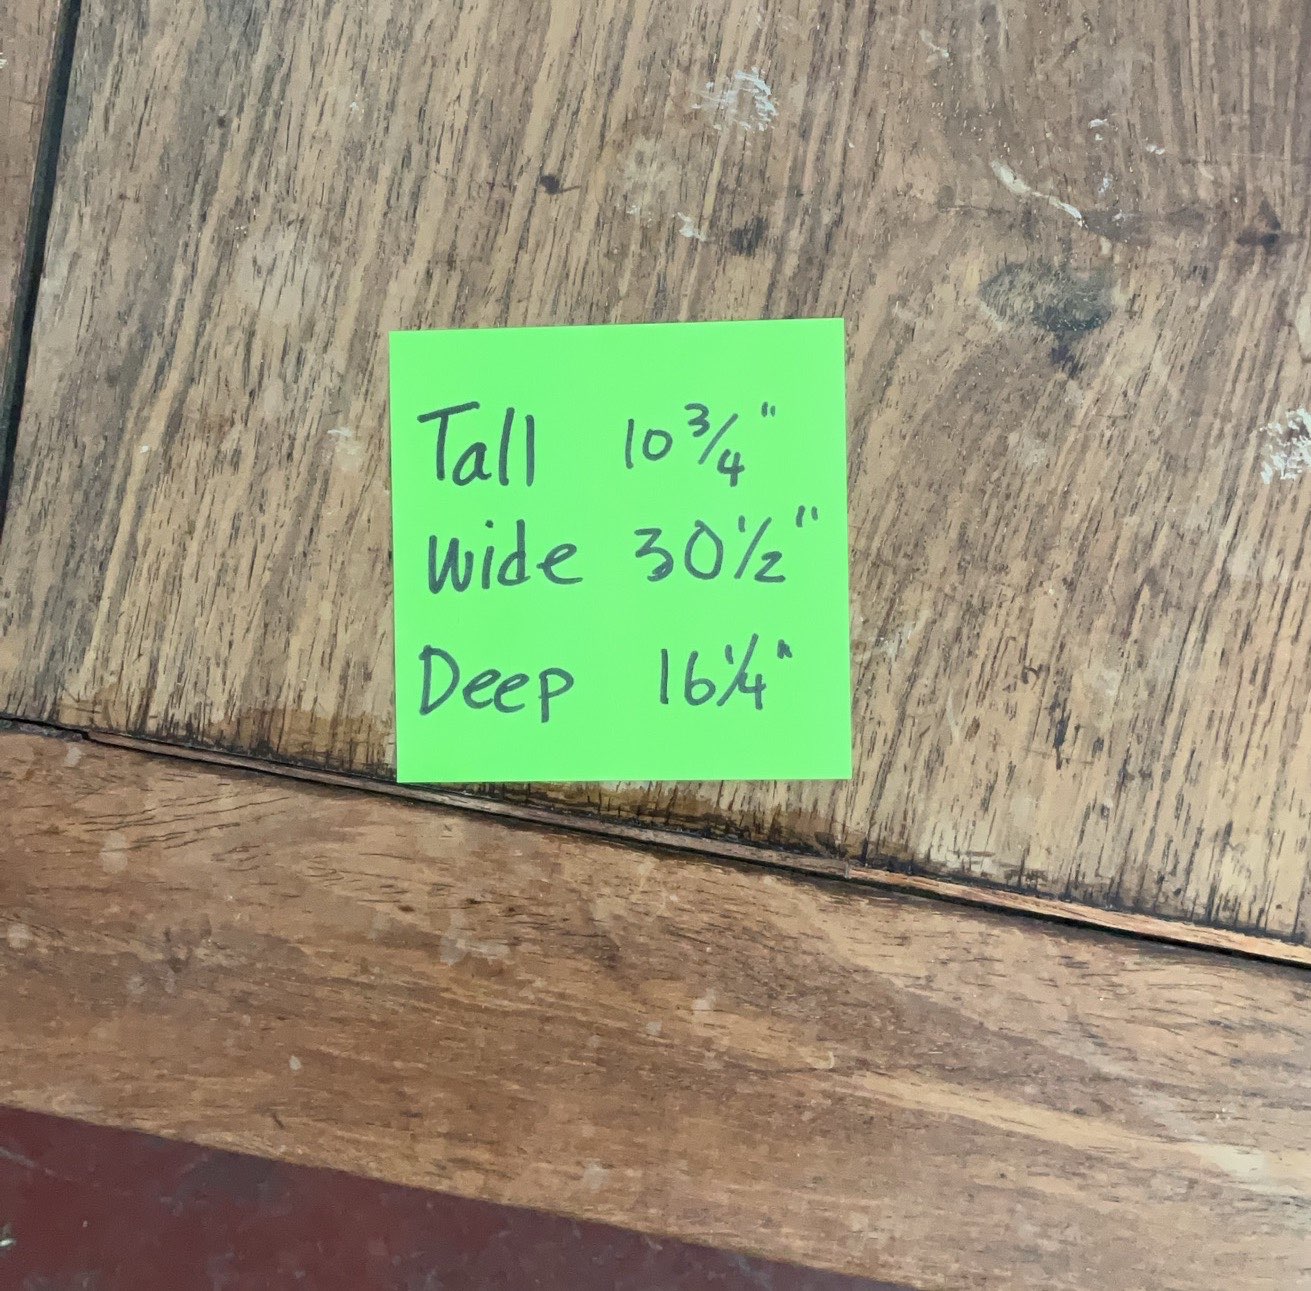 Tall 10 3/4"
Wide 30 1/2"
Deep 16 1/4"